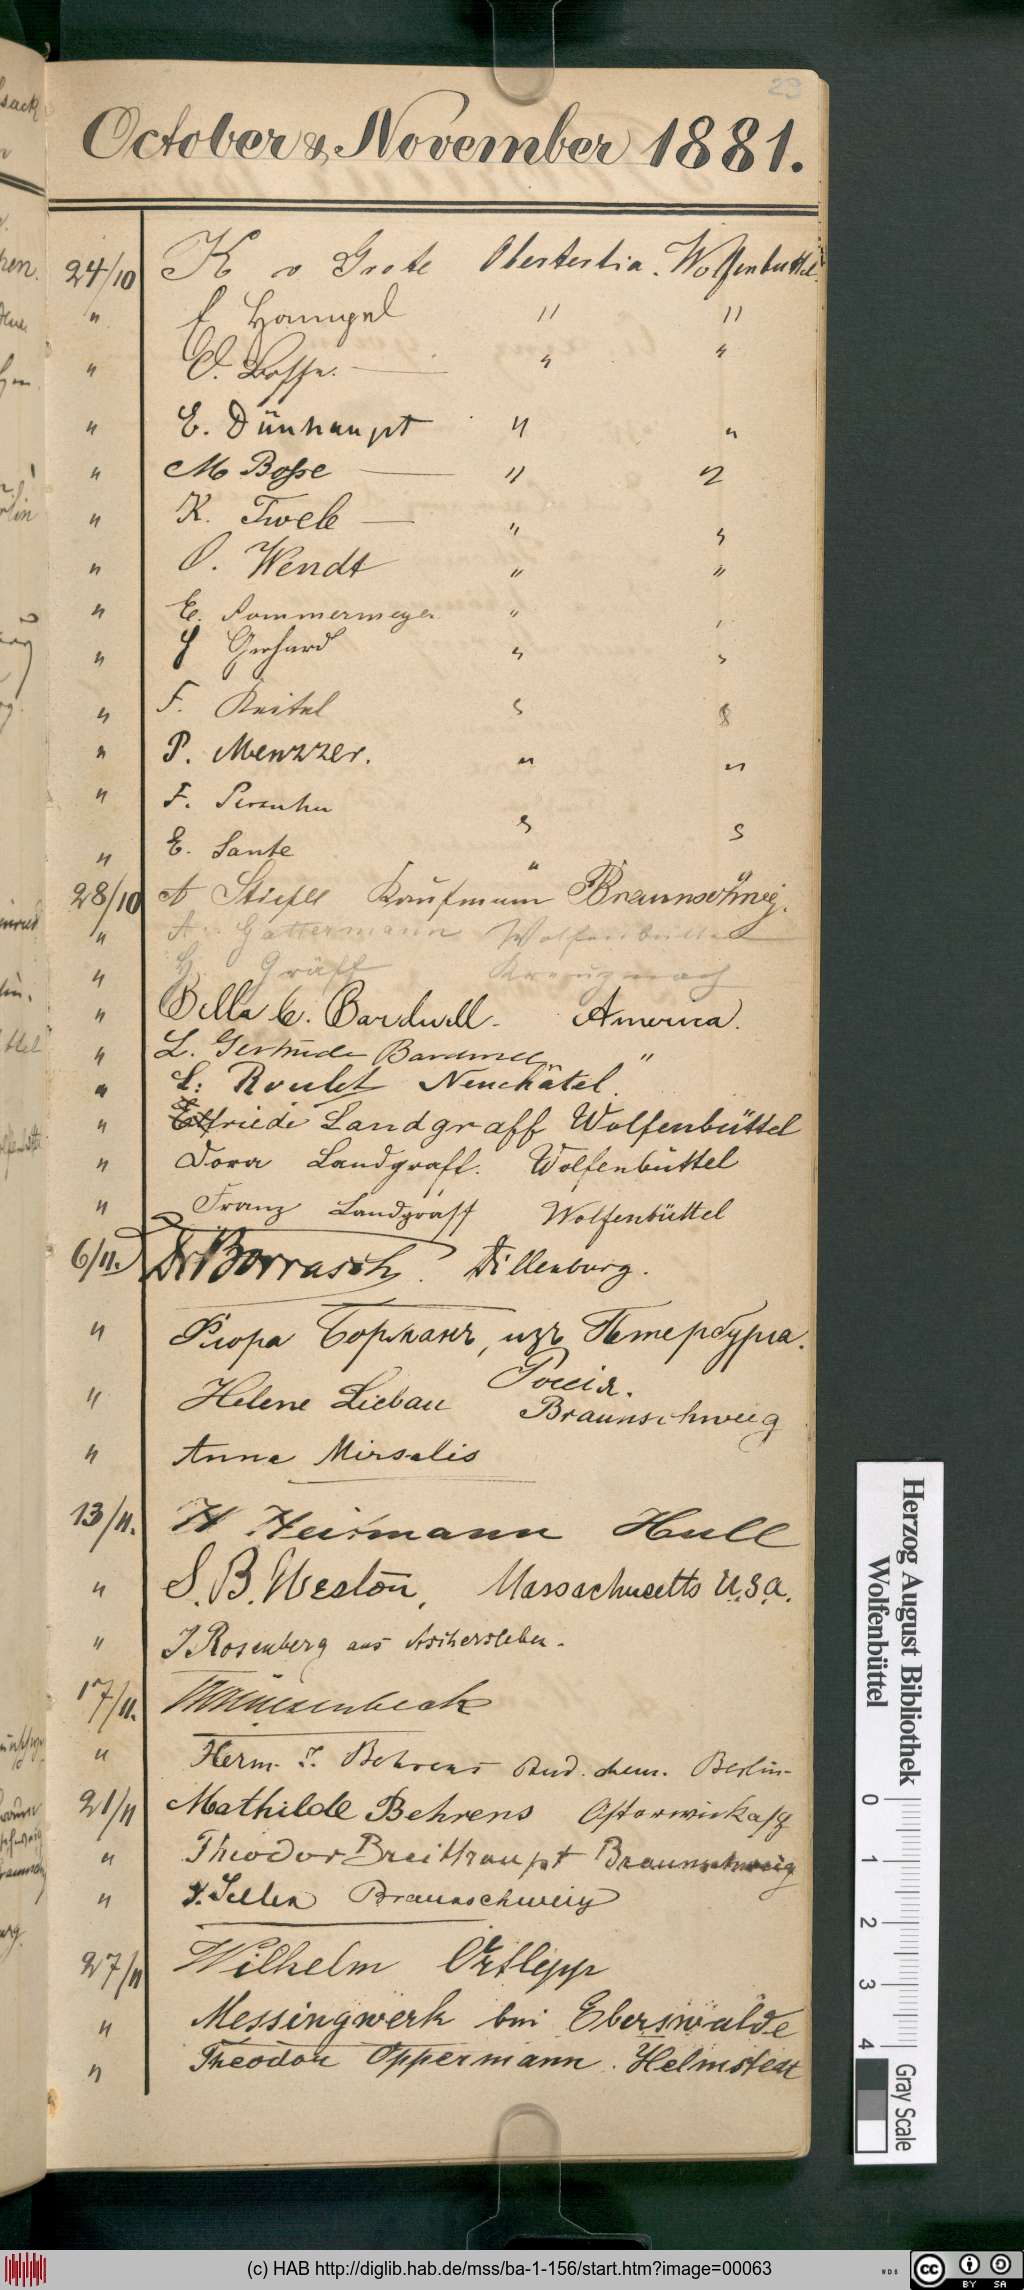 29
October & November 1881.
24/10 K v Grote Obertertia. Wolfenbüttel.
" f Hampel " "
" O. Bosse. — " "
" E. Dünhaupt " "
" M Bosse — " "
" K. Twele — " "
" O. Wendt " "
" E. Sommermeyer "
" Gerhard " "
" F. Keitel " "
" P. Menzzer. " "
" F. " "
" E. Sante "
28/10 A Stiefel Kaufmann Braunschweig.
" A. Gattermann Wolfenbüttel
" H. Gräff Kreuznach
" Della C. Bardwell. America.
" L. Gertrude Bardwell "
" L: Roulet Neuchâtel.
" Elfriede Landgraff Wolfenbüttel
" Dora Landgraff. Wolfenbüttel
" Franz Landgraff Wolfenbüttel
6/11. Dr Borrasch. Dillenburg.
" Флора Борманъ, изъ Петербурга.
Россія.
" Helene Liebau Braunschweig
" Anna Mirsalis
13/11. H Heitmann Hull
" S. B. Weston, Massachusetts U.S.A.
" J. Rosenberg aus Aschersleben.
17/11.
" Herm. J. Behrens stud. chem. Berlin
21/11 Mathilde Behrens Osterwieck a/H
" Theodor Breithaupt Braunschweig
" Braunschweig
27/11 Wilhelm Ortlepp
" Messingwerk bei Eberswalde
" Theodor Oppermann. Helmstedt
Herzog August Bibliothek
Wolfenbüttel
0 1 2 3 4
Gray Scale
(c) HAB http://diglib.hab.de/mss/ba-1-156/start.htm?image=00063
WDB
cc BY SA